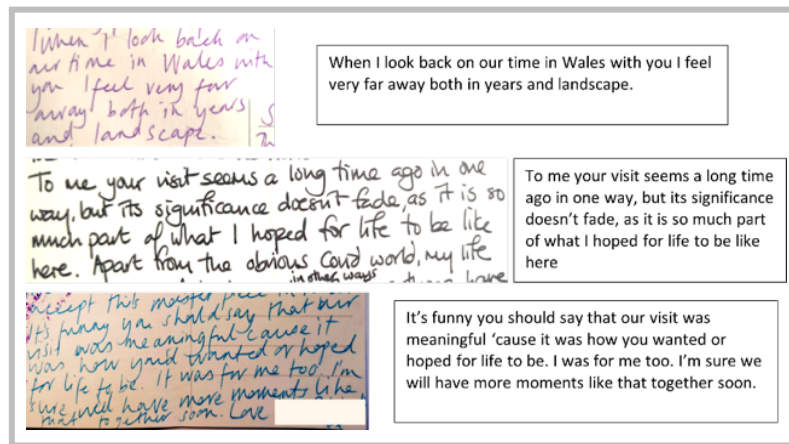 When I look back on
our time in Wales with
you I feel very far
away both in years
and landscape.
When I look back on our time in Wales with you I feel
very far away both in years and landscape.
To me your visit seems a long time ago in one
way, but its significance doesn't fade, as it is so
much part of what I hoped for life to be like
here. Apart from the obvious Covid world, my life
in other ways
have
To me your visit seems a long time
ago in one way, but its significance
doesn't fade, as it is so much part
of what I hoped for life to be like
here
accept this master piece
It's funny you should say that our
visit was meaningful cause it
was how you'd wanted or hoped
for life to be. It was for me too. I'm
sure we'd have more moments like
that together soon. Love
It's funny you should say that our visit was
meaningful 'cause it was how you wanted or
hoped for life to be. I was for me too. I'm sure we
will have more moments like that together soon.